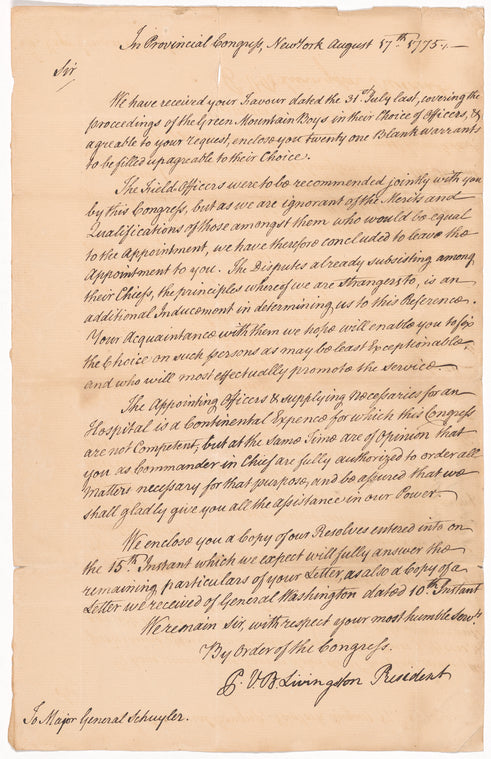 In Provincial Congress, New York August 17th 1775.—
Sir
We have received your Favour dated the 31st. July last, covering the
proceedings of the Green Mountain Boys in their Choice of Officers, &
agreable to your request, enclose you twenty one Blank warrants
to be filled up agreable to their Choice.
The Field Officers were to be recommended jointly with you
by this Congress, but as we are ignorant of the Merits and
Qualifications of those amongst them who would be equal
to the Appointment, we have therefore concluded to leave the
Appointment to you. The Disputes already subsisting among
their Chiefs, the principles whereof we are Strangers to, is an
additional Inducement in determining us to this Reference.
Your Acquaintance with them we hope will enable you to fix
the Choice on such persons as may be least Exceptionable
and who will most effectually promote the Service.
The Appointing Officers & supplying necessaries for an
Hospital is a Continental Expence for which this Congress
are not Competent, but at the Same Time are of Opinion that
you as Commander in Chief are fully authorized to order all
Matters necessary for that purpose, and be assured that we
shall gladly give you all the assistance in our Power.
We enclose you a Copy of our Resolves entered into on
the 15th Instant which we expect will fully answer the
remaining particulars of your Letter, as also a Copy of a
Letter we received of General Washington dated 10th Instant
We remain Sir, with respect your most humble Servts
By Order of the Congress.
P. V. B. Livingston President
To Major General Schuyler.